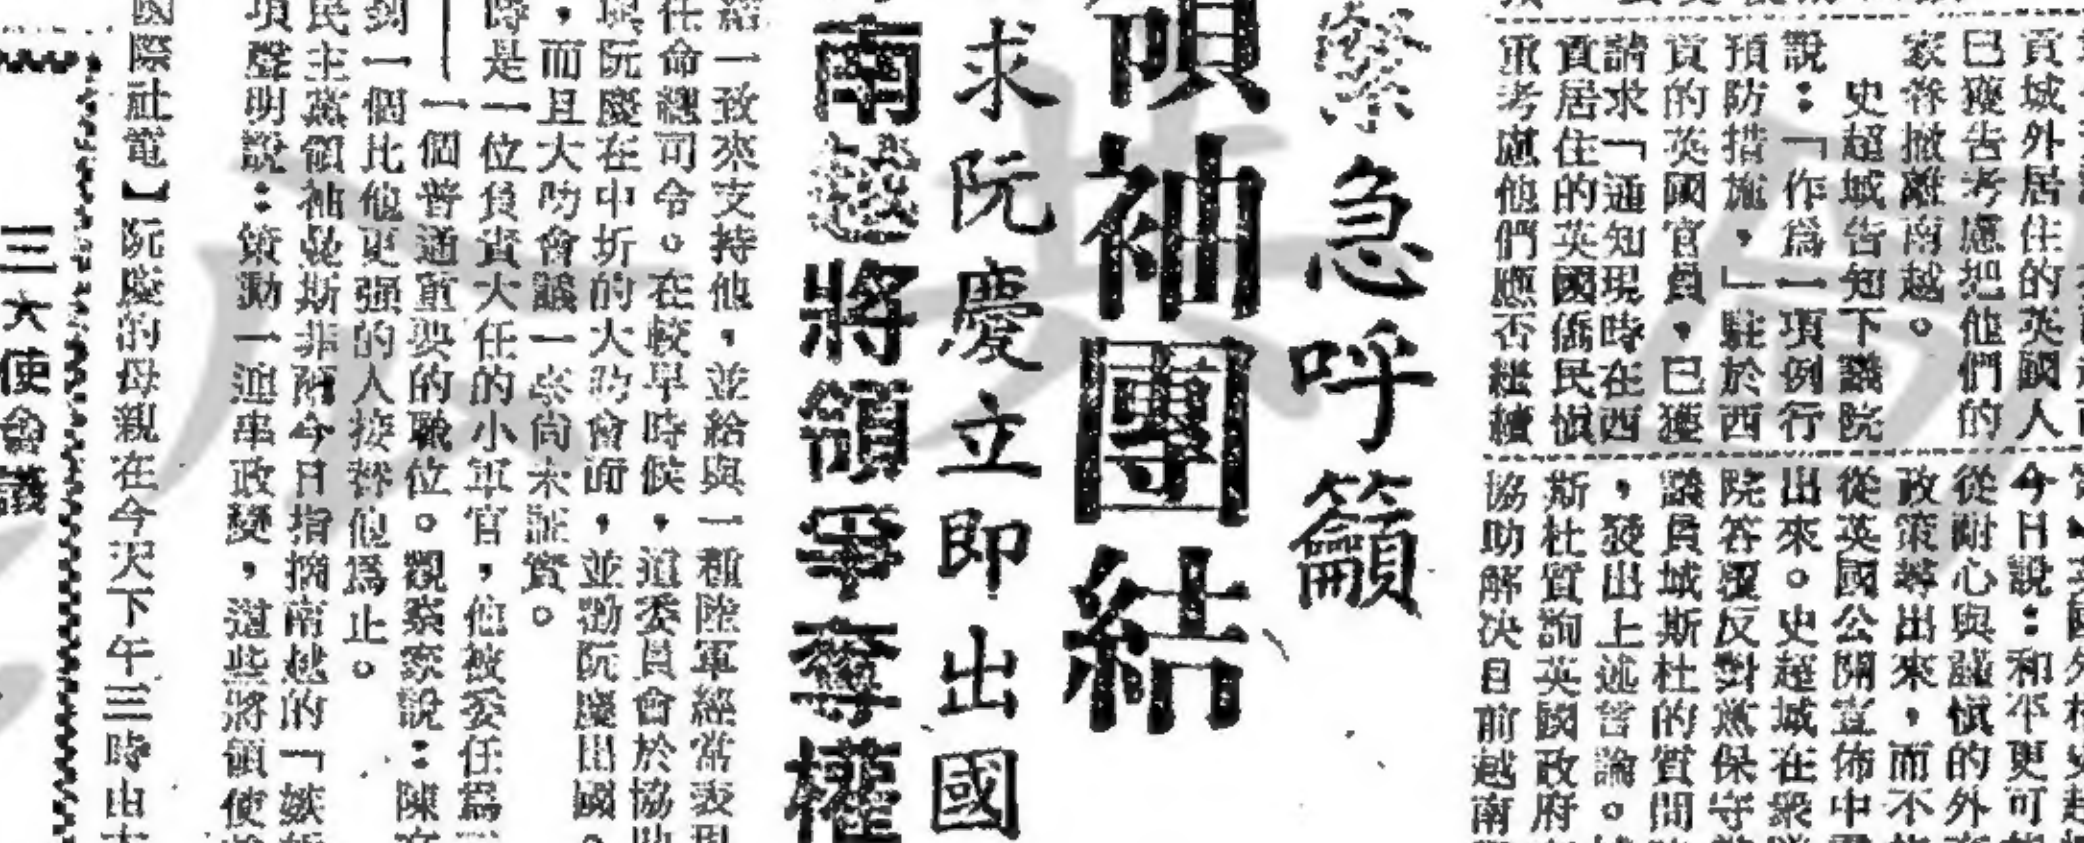 貢城外居住的英國人
已獲告考慮把他們的
家眷撤離南越。
史超城告知下議院
說：「作爲一項例行
預防措施，」駐於西
貢的英國官員，已獲
請求「通知現時在西
貢居住的英國僑民慎
重考慮他們應否繼續
今日說：和平更可
從耐心與謹慎的外
政策尋出來，而不
從英國公開宣佈中
出來。史超城在衆
院答覆反對黨保守
議員城斯杜的質問
，發出上述言論。
斯杜質詢英國政府
協助解決目前越南
緊急呼籲
領袖團結
求阮慶立即出國
南越將領爭奪權
給一致來支持他，並給與一種陸軍經常表現
任命總司令。在較早時候，這委員會於協助
與阮慶在中圻的大叻會面，並勸阮慶出國。
，而且大叻會議一案尚未証實。
時是一位負責大任的小軍官，他被委任爲
——一個普通重要的職位。觀察家說：陳
到一個比他更强的人接替他爲止。
民主黨領袖曼斯非爾今日指摘南越的「嫉妒
項聲明說：策動一連串政變，這些將領使
國際社電】阮慶的母親在今天下午三時由
三大使會議